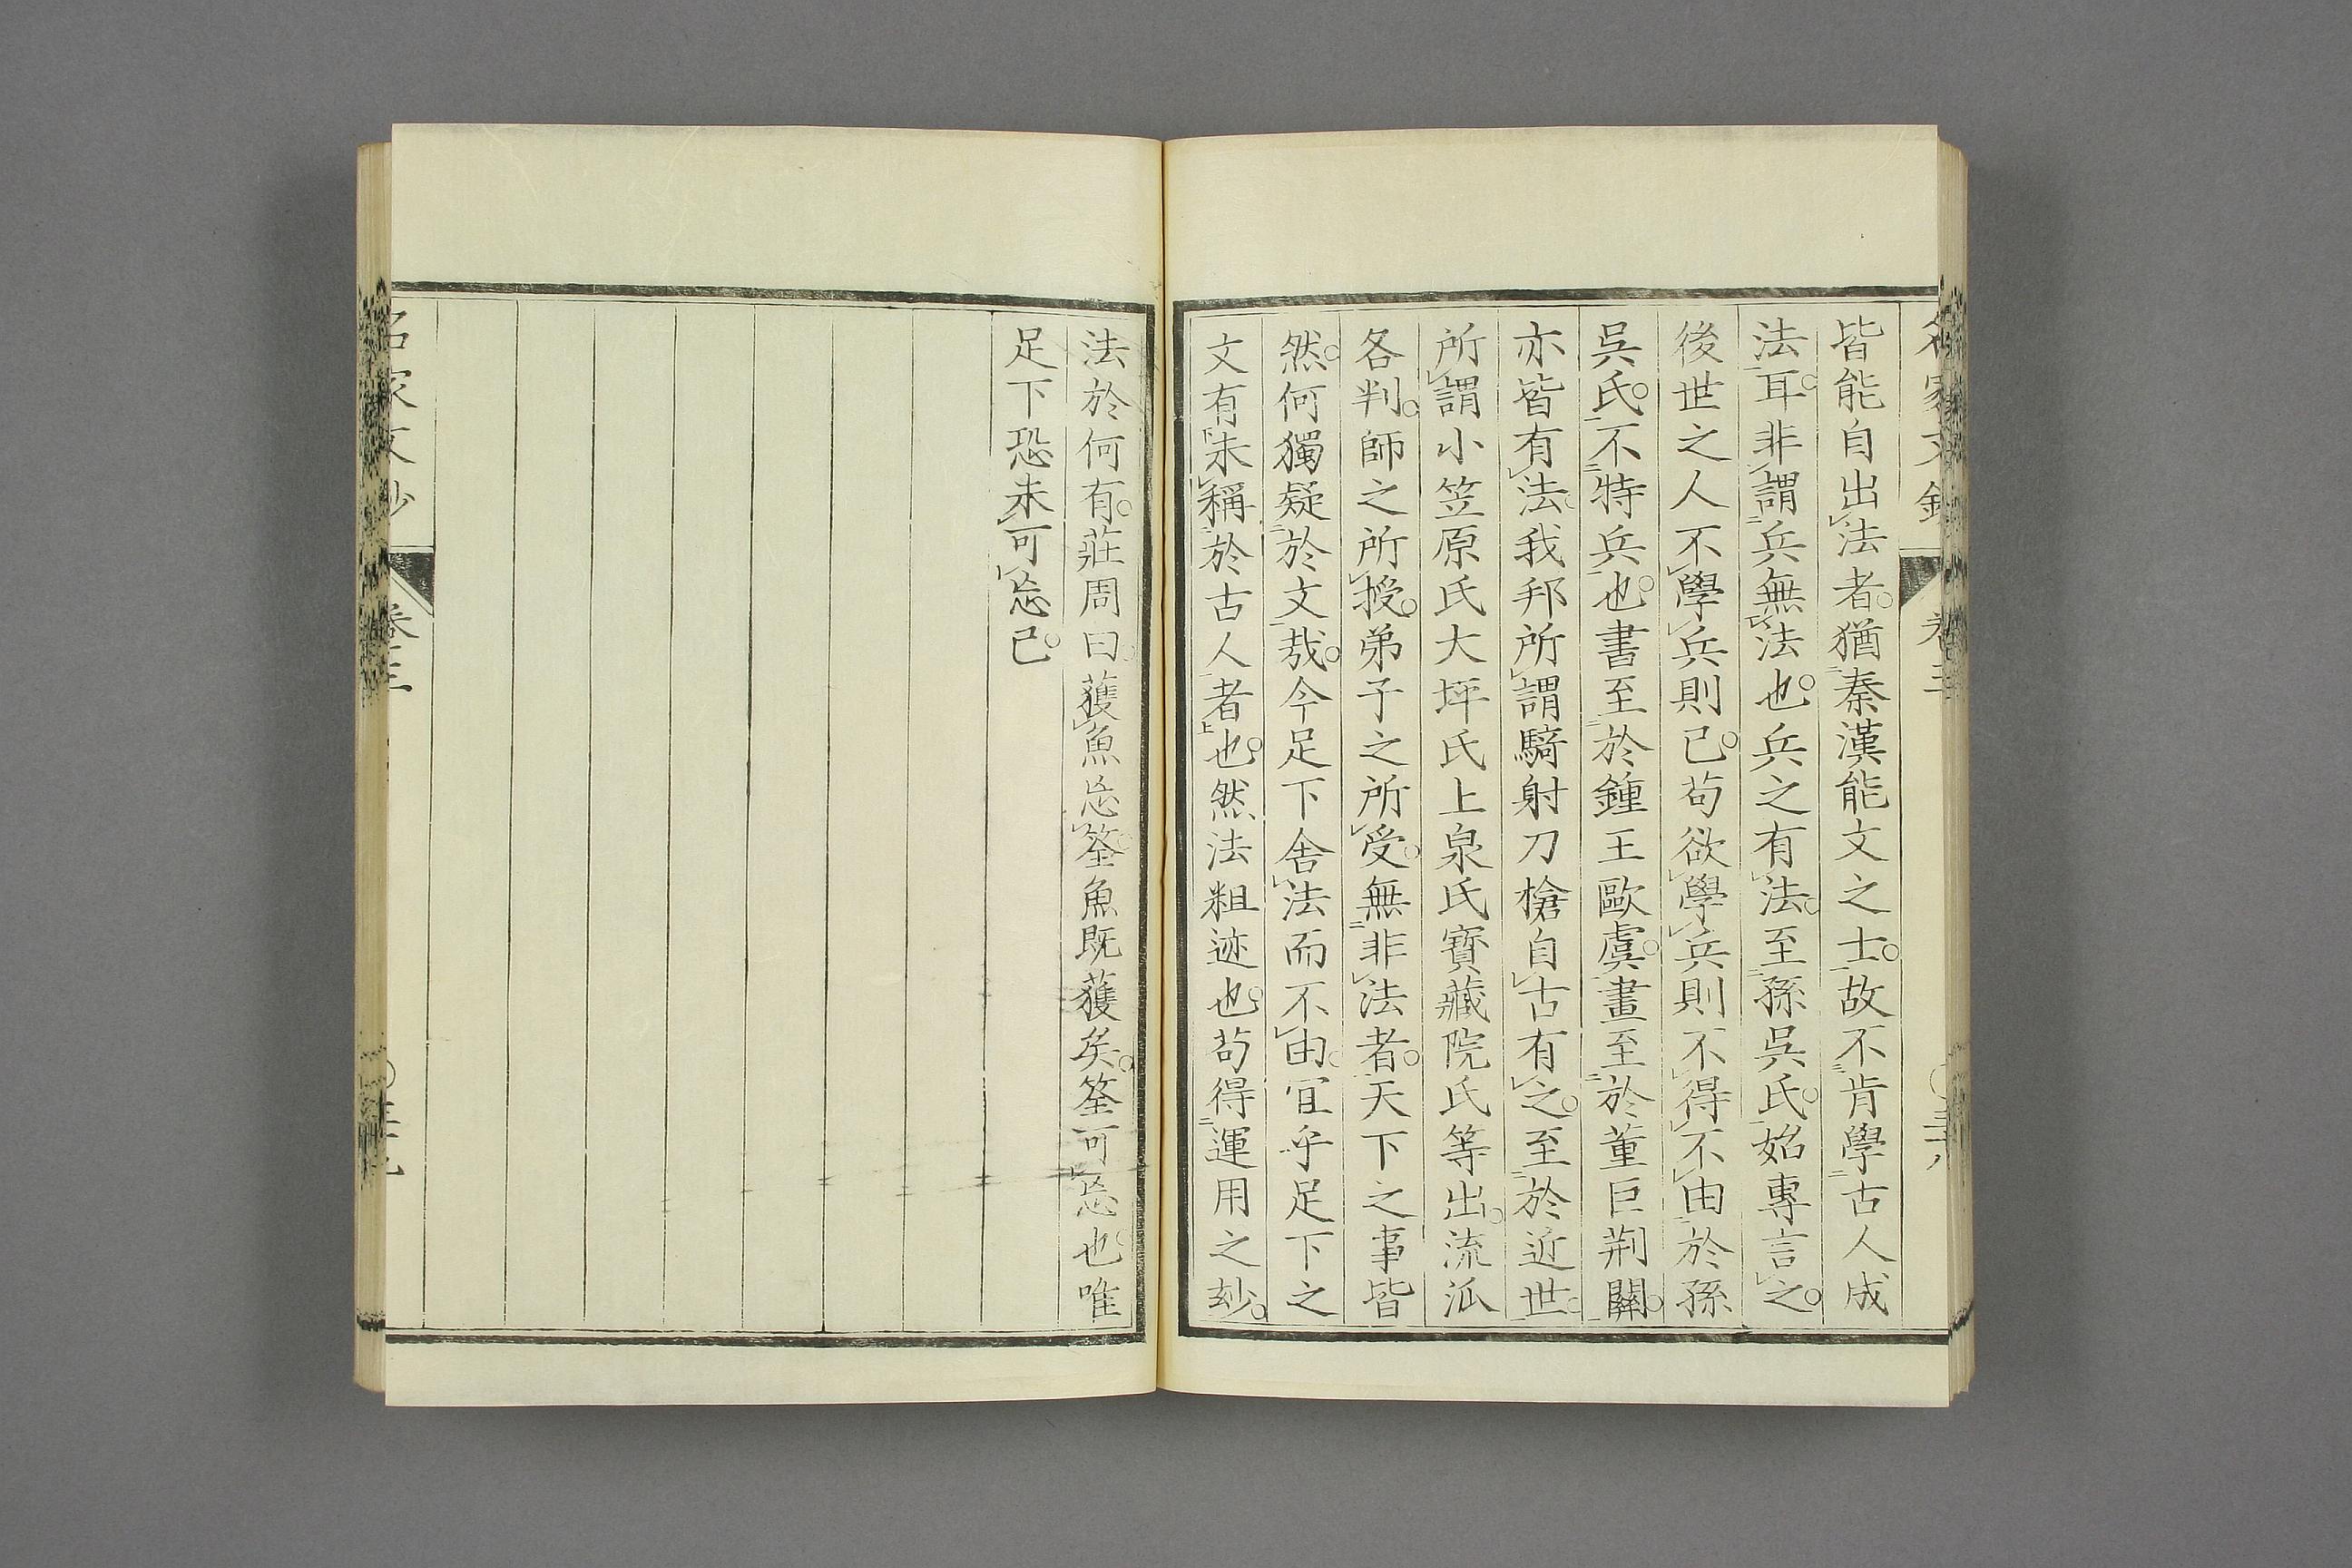 皆能自出法者。猶秦漢能文之士。故不肯學古人成
法耳。非謂兵無法也。兵之有法。至孫吳氏。始專言之。
後世之人不學兵則已。苟欲學兵則不得不由於孫
吳氏。不特兵也。書至於鍾王歐虞。畫至於董巨荆關。
亦皆有法。我邦所謂騎射刀槍自古有之。至於近世。
所謂小笠原氏大坪氏上泉氏寶藏院氏等出。流派
各判。師之所授。弟子之所受。無非法者。天下之事皆
然。何獨疑於文哉。今足下舍法而不由。宜乎足下之
文有未稱於古人者也。然法粗迹也。苟得運用之玅。
法於何有。莊周曰。獲魚忘筌。魚既獲矣。筌可忘也。唯
足下恐未可忘已。
名家文鈔
卷三